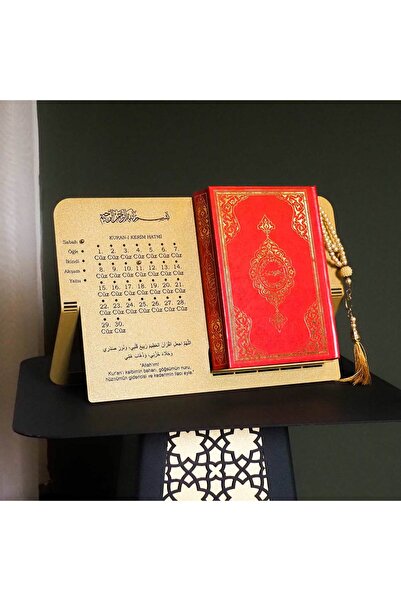 بسم الله الرحمن الرحيم
KURAN-I KERİM HATMİ
Sabah
Öğle
İkindi
Akşam
Yatsı
1. 2. 3. 4. 5. 6. 7.
Cüz Cüz Cüz Cüz Cüz Cüz Cüz
8. 9. 10. 11. 12. 13. 14.
Cüz Cüz Cüz Cüz Cüz Cüz Cüz
15. 16. 17. 18. 19. 20. 21.
Cüz Cüz Cüz Cüz Cüz Cüz Cüz
22. 23. 24. 25. 26. 27. 28.
Cüz Cüz Cüz Cüz Cüz Cüz Cüz
29. 30.
Cüz Cüz
اللهم اجعل القرآن العظيم ربيع قلبي، ونور صدري
وجلاء حزني، وذهاب همي
"Allah'ım!
Kur'an'ı kalbimin baharı, göğsümün nuru,
hüznümün gidericisi ve kederimin ilacı eyle."